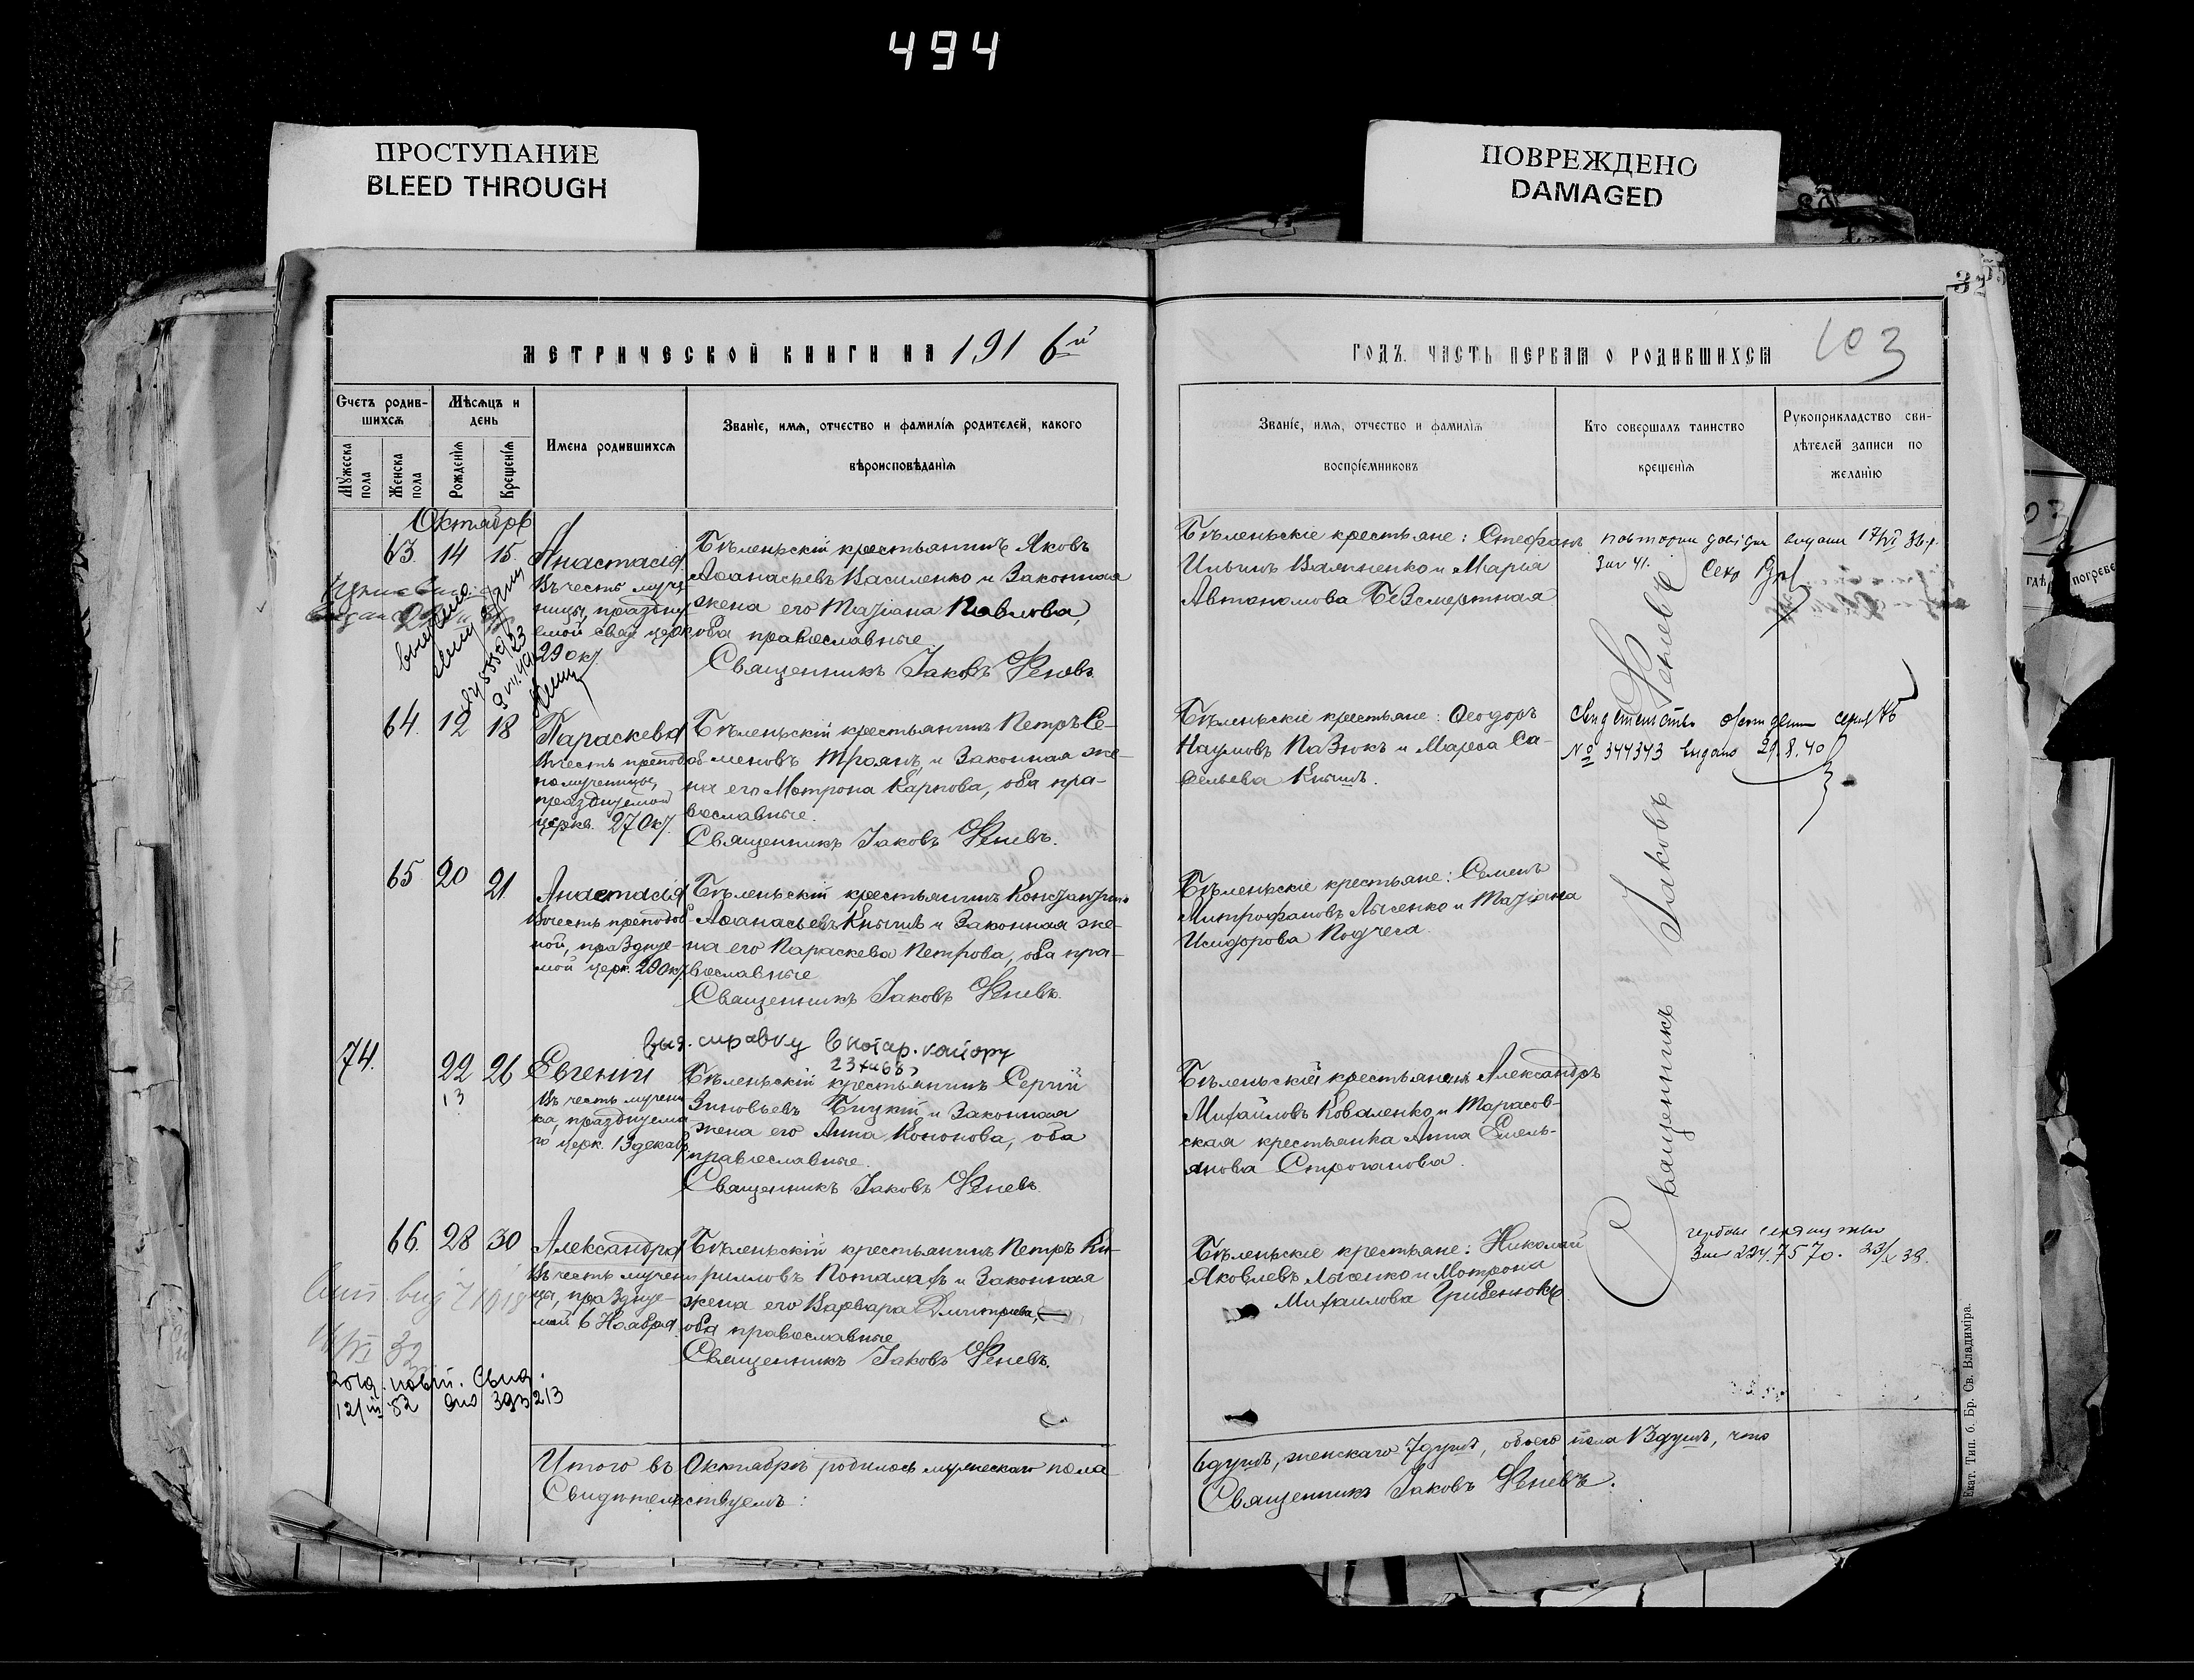 494
ПРОСТУПАНИЕ
BLEED THROUGH
ПОВРЕЖДЕНО
DAMAGED
МЕТРИЧЕСКОЙ КНИГИ НА 1916й
ГОДЪ. ЧАСТЬ ПЕРВАЯ О РОДИВШИХСЯ
103
Счетъ родив-
шихся
Мѣсяцъ и
день
Мужеска пола
Женска пола
Рожденія
Крещенія
Имена родившихся
Званіе, имя, отчество и фамилія родителей, какого
вѣроисповѣданія
Званіе, имя, отчество и фамилія
воспріемниковъ
Кто совершалъ таинство
крещенія
Рукоприкладство сви-
дѣтелей записи по
желанію
Октябрь
63. 14 15 Анастасія
Въ честь муче
ницы, праздну
емой свят. церк
29 окт.
Бѣленьскій крестьянинъ Яковъ
Аѳанасьевъ Василенко и законная
жена его Татіана Павлова,
оба православные
Священникъ Іаковъ Феневъ
Бѣленьскіе крестьяне: Стефанъ
Ильинъ и Марѳа
Автономова Безсмертная
64. 12 18 Параскева
Въ честь преподоб
номученицы,
празднуемой
церкв. 27 Окт.
Бѣленьскій крестьянинъ Петръ Се-
меновъ Троянъ и законная же-
на его Мотрона Карпова, оба пра-
вославные.
Священникъ Іаковъ Феневъ.
Бѣленьскіе крестьяне: Ѳеодоръ
Наумовъ Пазюкъ и Марѳа Са-
вельева Книшъ.
№ 344343 видано 29.8.40
65. 20 21. Анастасія
Въ честь преподоб
ной, праздуе-
мой церк. 29 окт
Бѣленьскій крестьянинъ Константинъ
Аѳанасьевъ Книшъ и законная же-
на его Параскева Петрова, оба пра-
вославные
Священникъ Іаковъ Феневъ.
Бѣленьскіе крестьяне: Семенъ
Митрофановъ Лысенко и Татіана
Исидорова Подчеса.
выд. справку в нотар. контору
74. 22 26 Евгеній
13
Въ честь мучени
ка, празднуема
го церк. 13 декабр
Бѣленьскій крестьянинъ Сергій
Зиновьевъ Бицкій и законная
жена его Анна Кононова, оба
православные.
Священникъ Іаковъ Феневъ.
Бѣленьскій крестьянинъ Александръ
Михайловъ Коваленко и Тарасов-
ская крестьянка Анна Емель-
янова Строганова.
66. 28 30 Александра
Въ честь мучени
цы, праздуе-
мой 6 Ноября
Бѣленьскій крестьянинъ Петръ Ки-
рилловъ Поталахъ и законная
жена его Варвара Дмитріева,
оба православные
Священникъ Іаковъ Феневъ.
Бѣленьскіе крестьяне: Николай
Яковлевъ Лысенко и Мотрона
Михаилова Гривенюкъ
Священникъ Іаковъ Феневъ
Итого въ Октябрѣ родилось мужескаго пола
6 душъ, женскаго 7 душъ, обоего пола 13 душъ, что
Свидѣтельствуемъ:
Священникъ Іаковъ Феневъ.
Екат. Тип. б. Бр. Св. Владиміра.